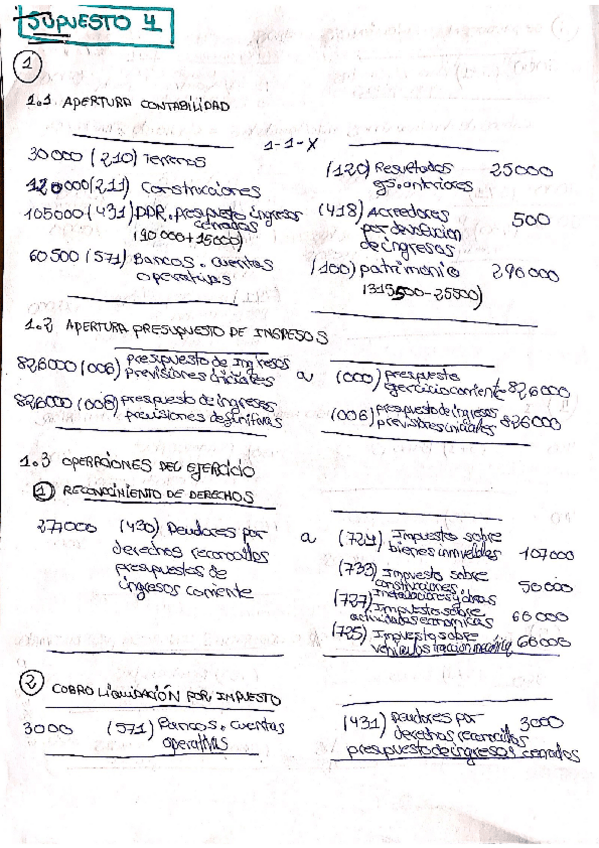 SUPUESTO 4
1
1.1 APERTURA CONTABILIDAD
1-1-X
30000 (210) Terrenos
(120) Resultados 25000
ej. anteriores
120000 (211) Construcciones
105000 (431) DDR. presupuesto ingresos
cerrados
(90000+15000)
(418) Acreedores 500
por devolución
de ingresos
60500 (571) Bancos. cuentas
operativas
(100) patrimonio 290000
(315500-25500)
1.2 APERTURA PRESUPUESTO DE INGRESOS
826000 (006) presupuesto de ingresos
previsiones iniciales
a (000) presupuesto
ejercicio corriente 826000
826000 (008) presupuesto de ingresos
previsiones definitivas
(006) presupuesto de ingresos
previsiones iniciales 826000
1.3 OPERACIONES DEL EJERCICIO
1 RECONOCIMIENTO DE DERECHOS
(430) Deudores por
derechos reconocidos
presupuestos de
ingresos corriente
a (724) Impuesto sobre
bienes inmuebles 107000
(733) Impuesto sobre
construcciones,
instalaciones y obras
(727) Impuesto sobre
actividades económicas
(725) Impuesto sobre
vehículos tracción mecánica
2 COBRO LIQUIDACIÓN POR IMPUESTO
3000 (571) Bancos. cuentas
operativas
(431) Deudores por 3000
derechos reconocidos
presupuesto de ingresos cerrados